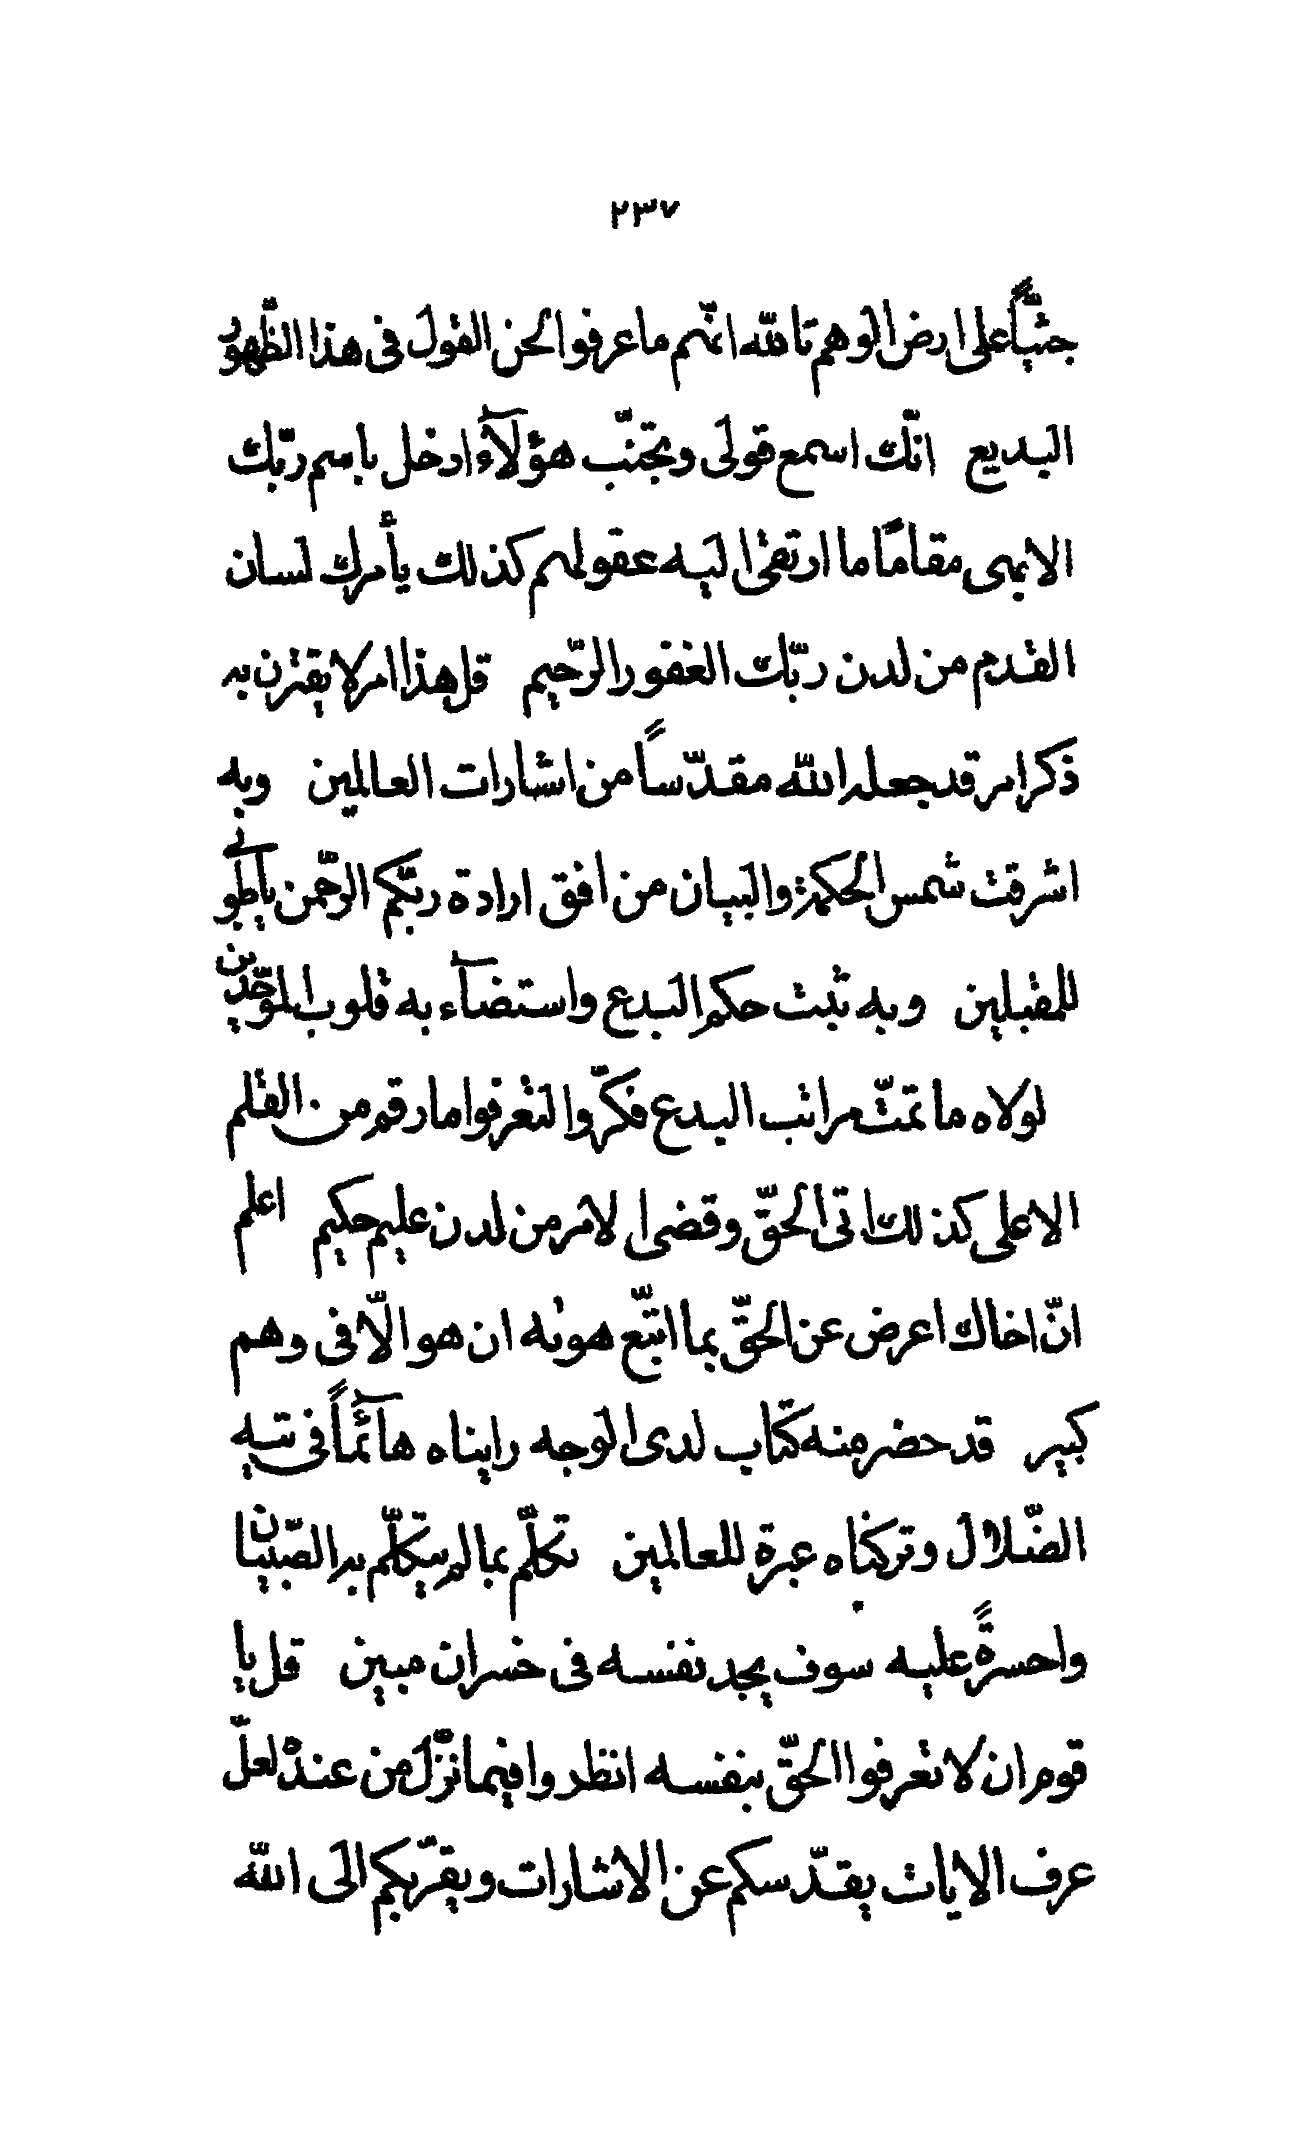 ٢٣٧
جثيّاً على ارض الوهم تالله انّهم ما عرفوا لحن القول فى هذا الظّهور
البديع انّك اسمع قولى و تجنّب هؤلآء ادخل باسم ربّك
الابهى مقاماً ما ارتقى اليه عقولهم كذلك يأمرك لسان
القدم من لدن ربّك الغفور الرّحيم قل هذا امر لا يقترن به
ذكر امر قد جعله الله مقدّساً من اشارات العالمين و به
اشرقت شمس الحكمة و البيان من افق ارادة ربّكم الرّحمن يا طوبى
للمقبلين و به ثبت حكم البدع و استضآء به قلوب الموحّدين
لولاه ما تمّت مراتب البدع فكّروا لتعرفوا ما رقم من القلم
الاعلى كذلك اتى الحقّ و قضى الامر من لدن عليم حكيم اعلم
انّ اخاك اعرض عن الحقّ بما اتّبع هوىه ان هو الّا فى وهم
كبير قد حضر منه كتاب لدى الوجه رايناه هآئماً فى تيه
الضّلال و تركناه عبرة للعالمين تكلّم بما لم يتكلّم به الصّبيان
وا حسرةً عليه سوف يجد نفسه فى خسران مبين قل يا
قوم ان لا تعرفوا الحقّ بنفسه انظروا فيما نزّل من عنده لعلّ
عرف الايات يقدّسكم عن الاشارات و يقرّبكم الى الله